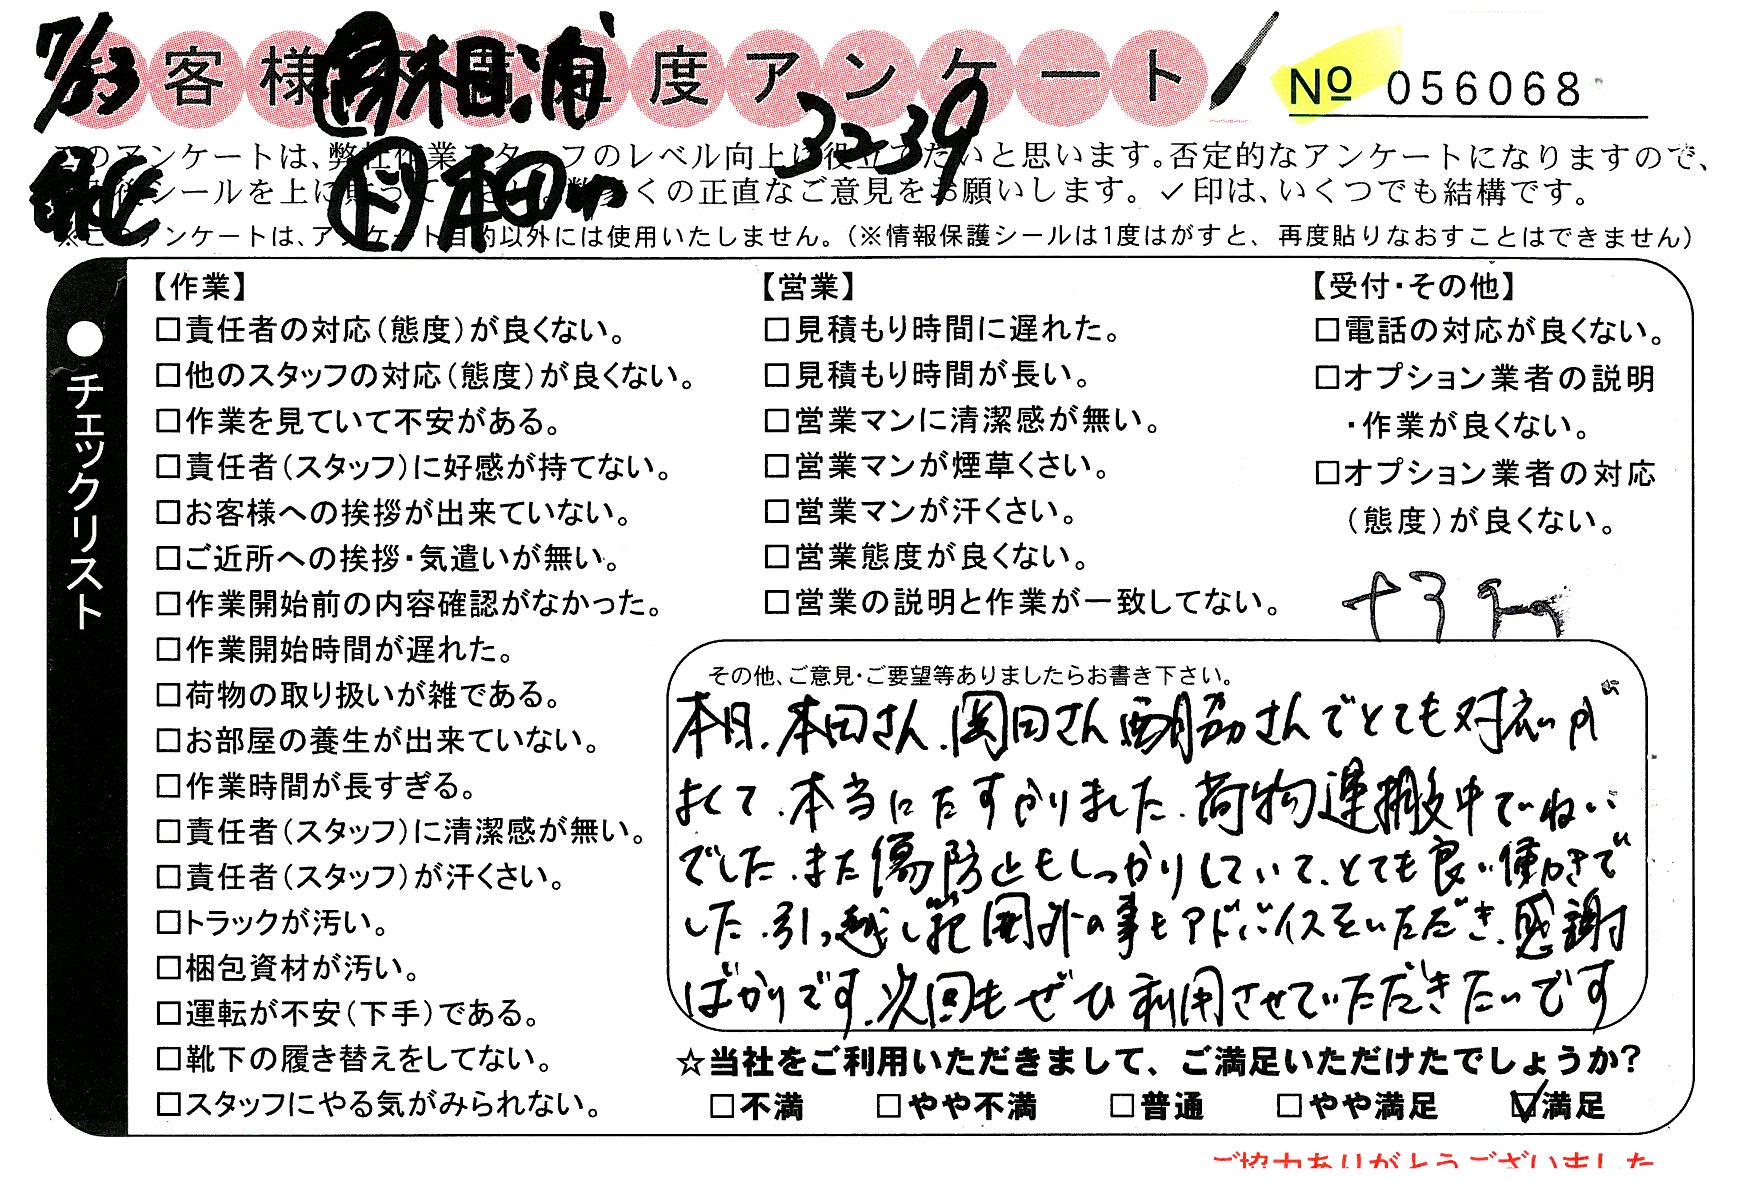 7/23
客様 度アンケート
相浦
№ 056068
3239
このアンケートは、弊社作業スタッフのレベル向上に役立てたいと思います。否定的なアンケートになりますので、
シールを上に貼って 数多くの正直なご意見をお願いします。✓印は、いくつでも結構です。
本田
※このアンケートは、アンケート目的以外には使用いたしません。（※情報保護シールは1度はがすと、再度貼りなおすことはできません）
●チェックリスト
【作業】
□責任者の対応（態度）が良くない。
□他のスタッフの対応（態度）が良くない。
□作業を見ていて不安がある。
□責任者（スタッフ）に好感が持てない。
□お客様への挨拶が出来ていない。
□ご近所への挨拶・気遣いが無い。
□作業開始前の内容確認がなかった。
□作業開始時間が遅れた。
□荷物の取り扱いが雑である。
□お部屋の養生が出来ていない。
□作業時間が長すぎる。
□責任者（スタッフ）に清潔感が無い。
□責任者（スタッフ）が汗くさい。
□トラックが汚い。
□梱包資材が汚い。
□運転が不安（下手）である。
□靴下の履き替えをしてない。
□スタッフにやる気がみられない。
【営業】
□見積もり時間に遅れた。
□見積もり時間が長い。
□営業マンに清潔感が無い。
□営業マンが煙草くさい。
□営業マンが汗くさい。
□営業態度が良くない。
□営業の説明と作業が一致してない。
【受付・その他】
□電話の対応が良くない。
□オプション業者の説明
・作業が良くない。
□オプション業者の対応
（態度）が良くない。
その他、ご意見・ご要望等ありましたらお書き下さい。
本日、本田さん、岡田さん さんでとても対応が
よくて、本当にたすかりました、荷物運搬中ていねい
でした、また傷防止もしっかりしていて、とても良い働きで
した、引っ越し範囲外の事もアドバイスをいただき、感謝
ばかりです、次回もぜひ利用させていただきたいです
☆当社をご利用いただきまして、ご満足いただけたでしょうか？
□不満 □やや不満 □普通 □やや満足 ☑満足
ご協力ありがとうございました